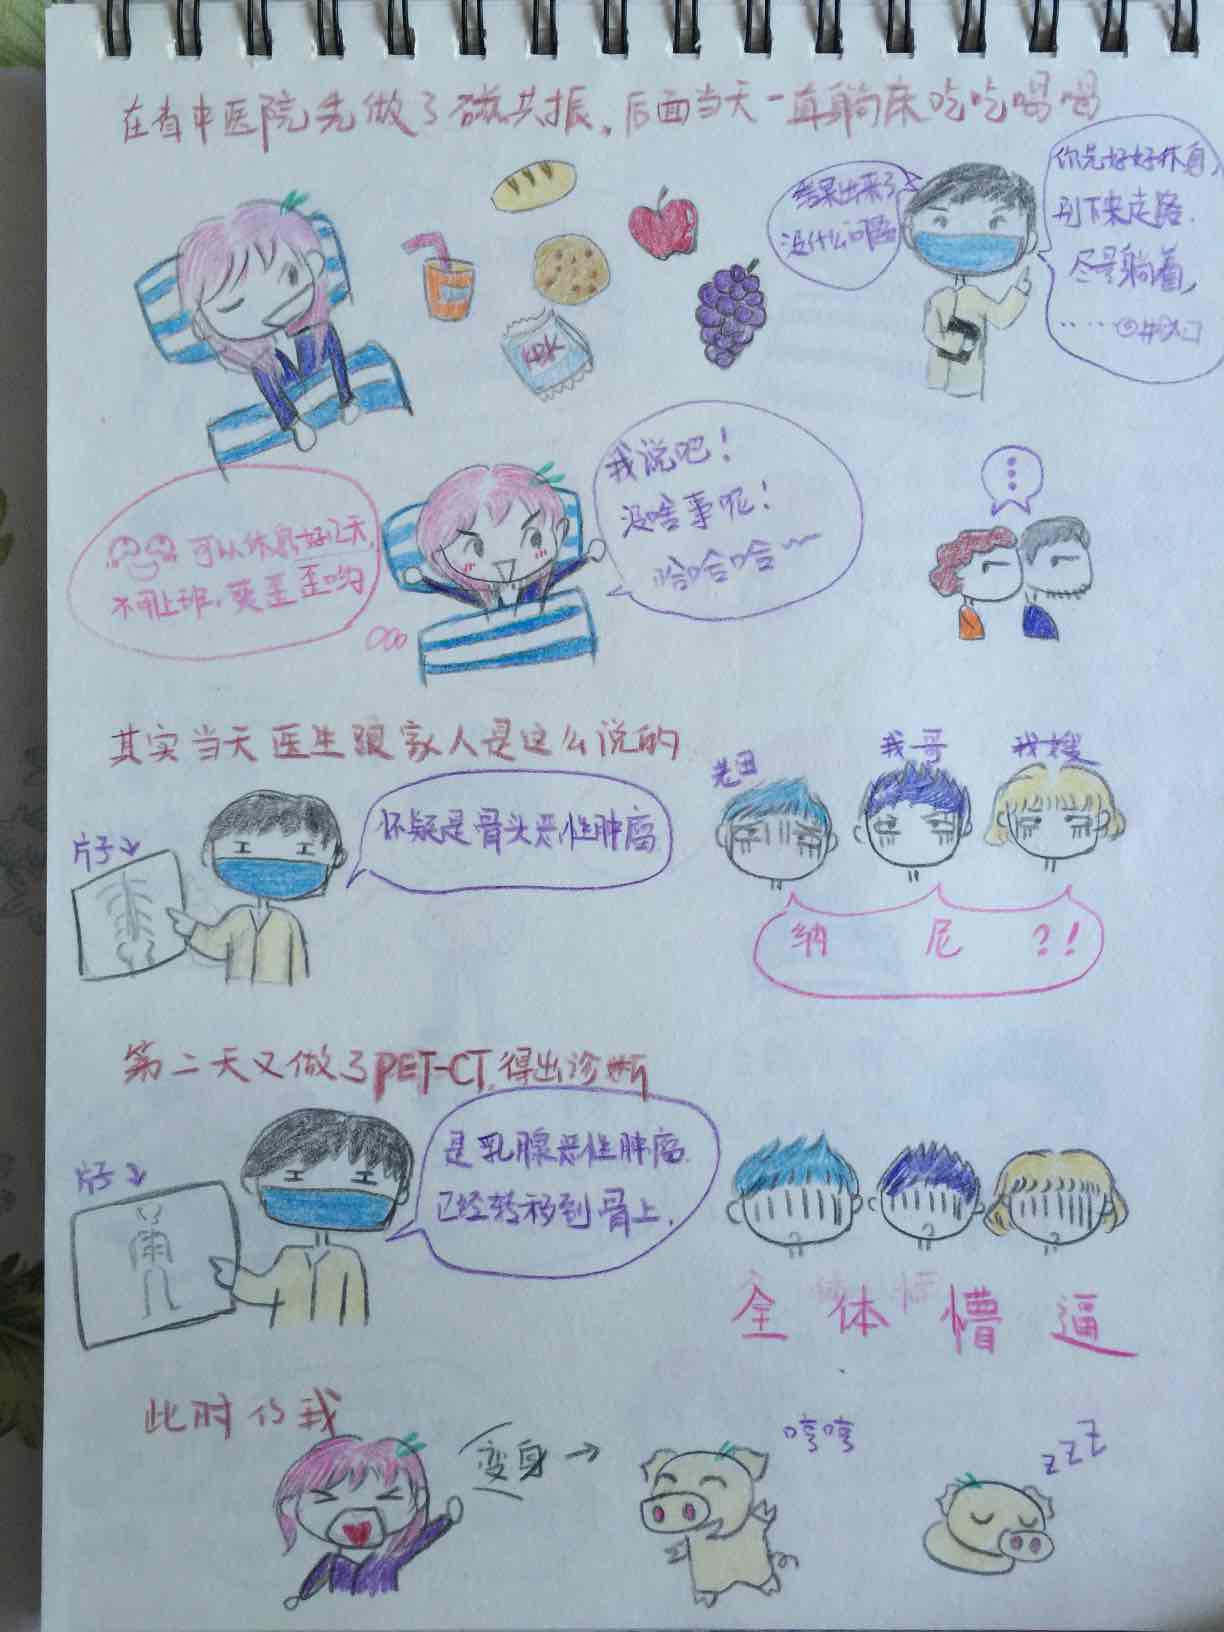 在省中医院先做了磁共振,后面当天一直躺床吃吃喝喝
结果出来了
没什么问题
你先好好休息,
别下来走路.
尽量躺着,
我说吧!
没啥事呢!
哈哈哈~~
可以休息好几天,
不用上班,爽歪歪哟
其实当天医生跟家人是这么说的
片子
怀疑是骨头恶性肿瘤
老田
我哥
我嫂
纳 尼 ?!
第二天又做了PET-CT,得出诊断
片子
是乳腺恶性肿瘤.
已经转移到骨上.
全体懵逼
此时的我
变身→
哼哼
zZZ